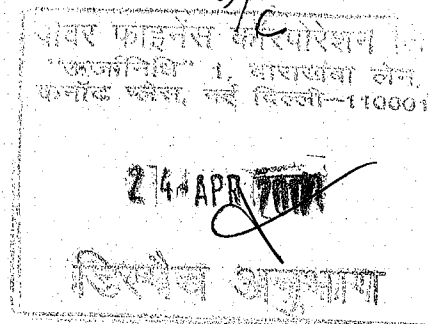 पावर फाइनेंस कारपोरेशन लि
"ऊर्जानिधि" 1, बाराखंबा लेन,
कनॉट प्लेस, नई दिल्ली-110001
24 APR
डिस्पैच अनुभाग